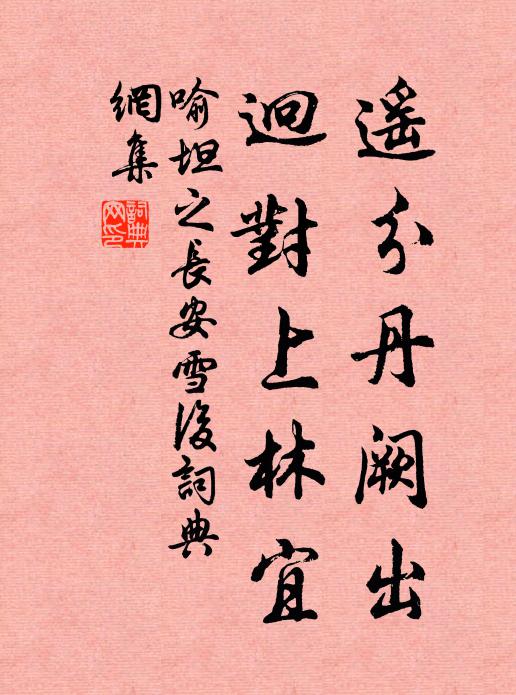 遥分丹阙出
迥對上林宜
喻坦之長安雪後詞典
網集
詞典
网印